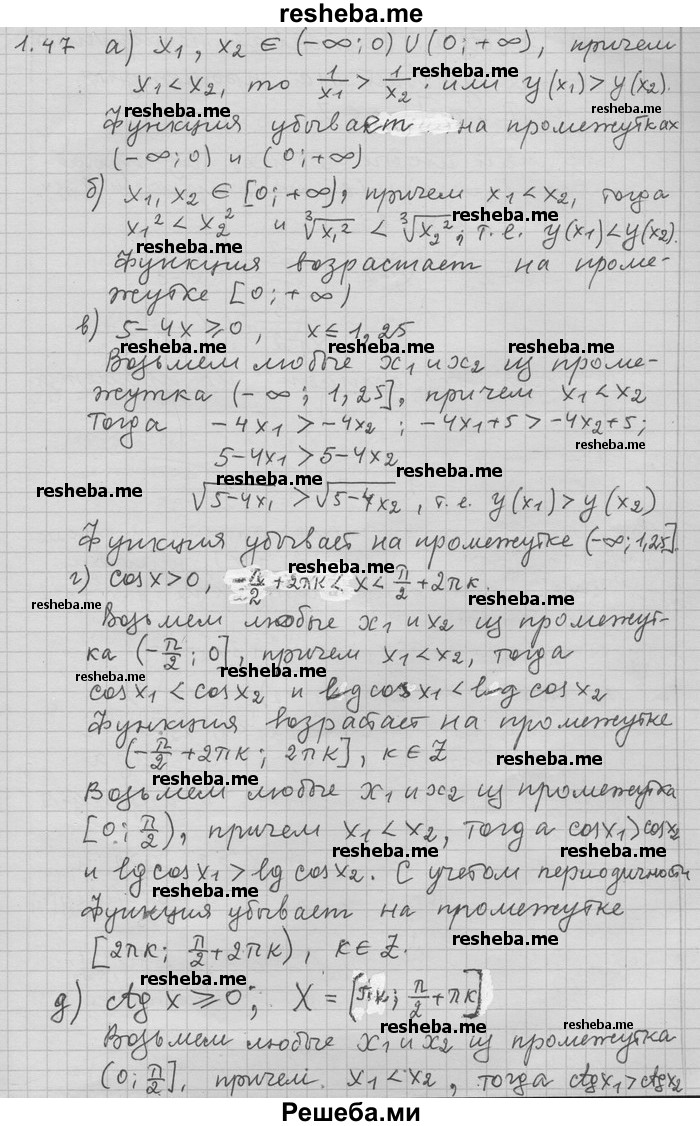 resheba.me
1.47 а) x₁, x₂ ∈ (-∞; 0) ∪ (0; +∞), причем
x₁ < x₂, то 1/x₁ > 1/x₂ или y(x₁) > y(x₂).
resheba.me
resheba.me
Функция убывает на промежутках
(-∞; 0) и (0; +∞)
resheba.me
resheba.me
б) x₁, x₂ ∈ [0; +∞), причем x₁ < x₂, тогда
resheba.me
x₁² < x₂² и ∛x₁² < ∛x₂², т.е. y(x₁) < y(x₂).
resheba.me
resheba.me
Функция возрастает на проме-
жутке [0; +∞)
resheba.me
в) 5-4x ≥ 0, x ≤ 1,25
resheba.me
resheba.me
Возьмем любые x₁ и x₂ из проме-
жутка (-∞; 1,25], причем x₁ < x₂
resheba.me
resheba.me
Тогда -4x₁ > -4x₂; -4x₁+5 > -4x₂+5;
resheba.me
5-4x₁ > 5-4x₂
resheba.me
resheba.me
√5-4x₁ > √5-4x₂, т.е. y(x₁) > y(x₂)
resheba.me
Функция убывает на промежутке (-∞; 1,25].
resheba.me
г) cosx > 0, -π/2 + 2πk < x < π/2 + 2πk.
resheba.me
resheba.me
Возьмем любые x₁ и x₂ из промежут-
resheba.me
ка (-π/2; 0], причем x₁ < x₂, тогда
resheba.me
resheba.me
cosx₁ < cosx₂ и lg cosx₁ < lg cosx₂
resheba.me
Функция возрастает на промежутке
resheba.me
(-π/2 + 2πk; 2πk], k ∈ Z
resheba.me
resheba.me
Возьмем любые x₁ и x₂ из промежутка
resheba.me
[0; π/2), причем x₁ < x₂, тогда cosx₁ > cosx₂
resheba.me
resheba.me
и lg cosx₁ > lg cosx₂. С учетом периодичности
resheba.me
функция убывает на промежутке
resheba.me
[2πk; π/2 + 2πk), k ∈ Z.
resheba.me
resheba.me
д) ctg x ≥ 0; X = [πk; π/2 + πk]
resheba.me
Возьмем любые x₁ и x₂ из промежутка
resheba.me
resheba.me
(0; π/2], причем x₁ < x₂, тогда ctgx₁ > ctgx₂
Решеба.ми